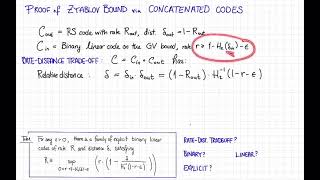 PROOF of ZYABLOV BOUND via CONCATENATED CODES
C_out = RS code with rate R_out, dist. δ_out = 1-R_out
C_in = Binary linear code on the GV bound, rate r ≥ 1-H₂(δ_in)-ε
RATE-DISTANCE TRADE-OFF: C = C_in ∘ C_out has:
Relative distance: δ = δ_in · δ_out = (1-R_out) · H₂⁻¹(1-r-ε)
For any ε>0, there is a family of explicit binary linear
codes of rate R and distance δ, satisfying
RATE-DIST. TRADEOFF?
BINARY? LINEAR?
EXPLICIT?